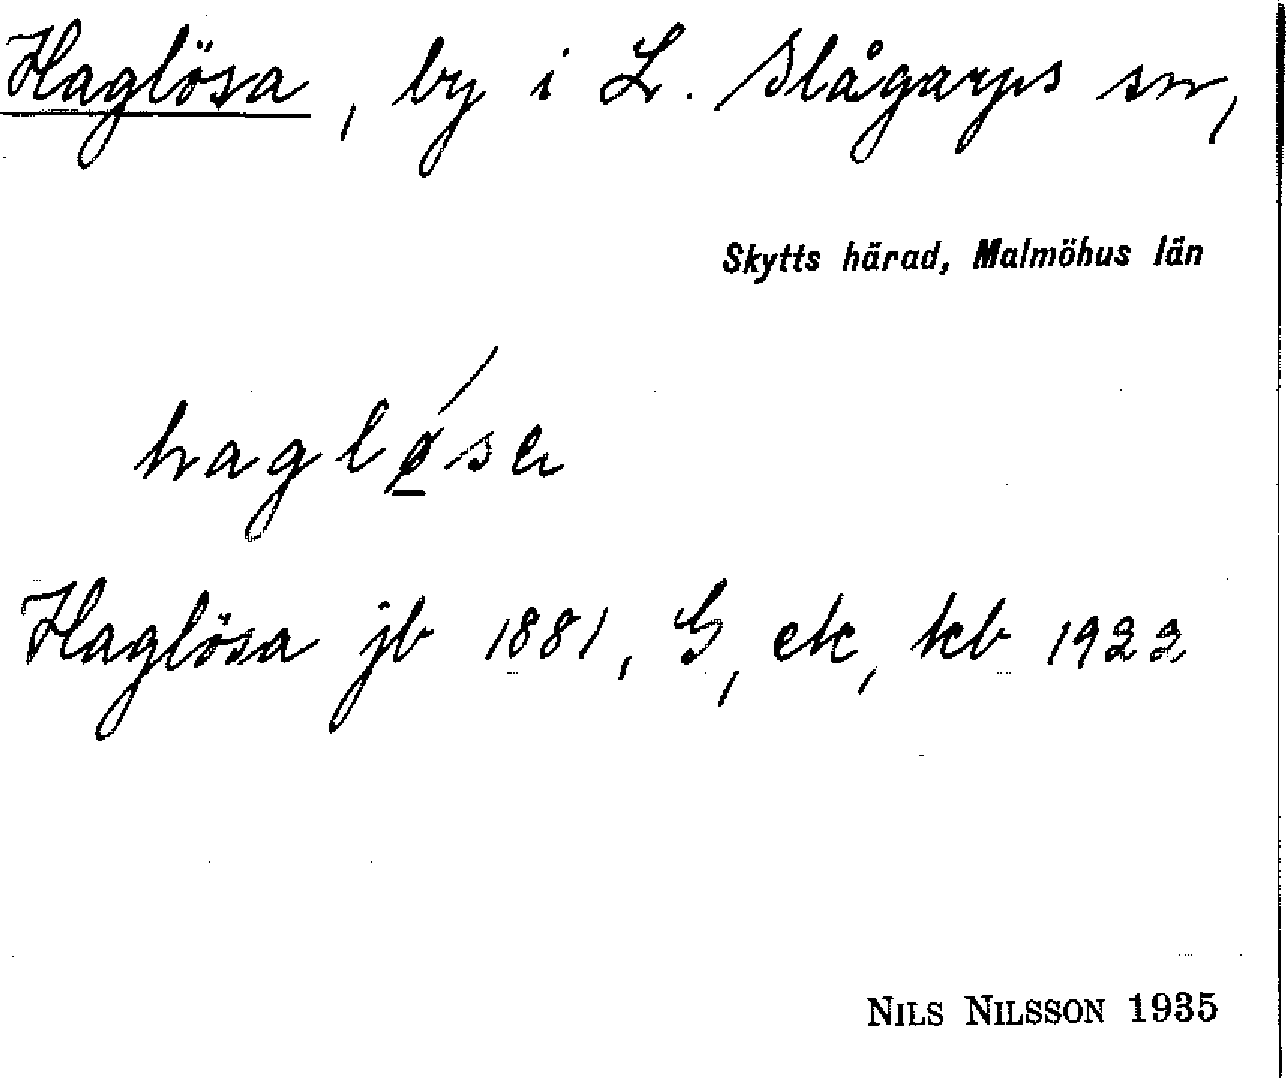 Haglösa, by i L. Slågarps sn,
Skytts härad, Malmöhus län
haglǿ̱sa
Haglösa jb 1881, G, ek, kb 1922
NILS NILSSON 1935